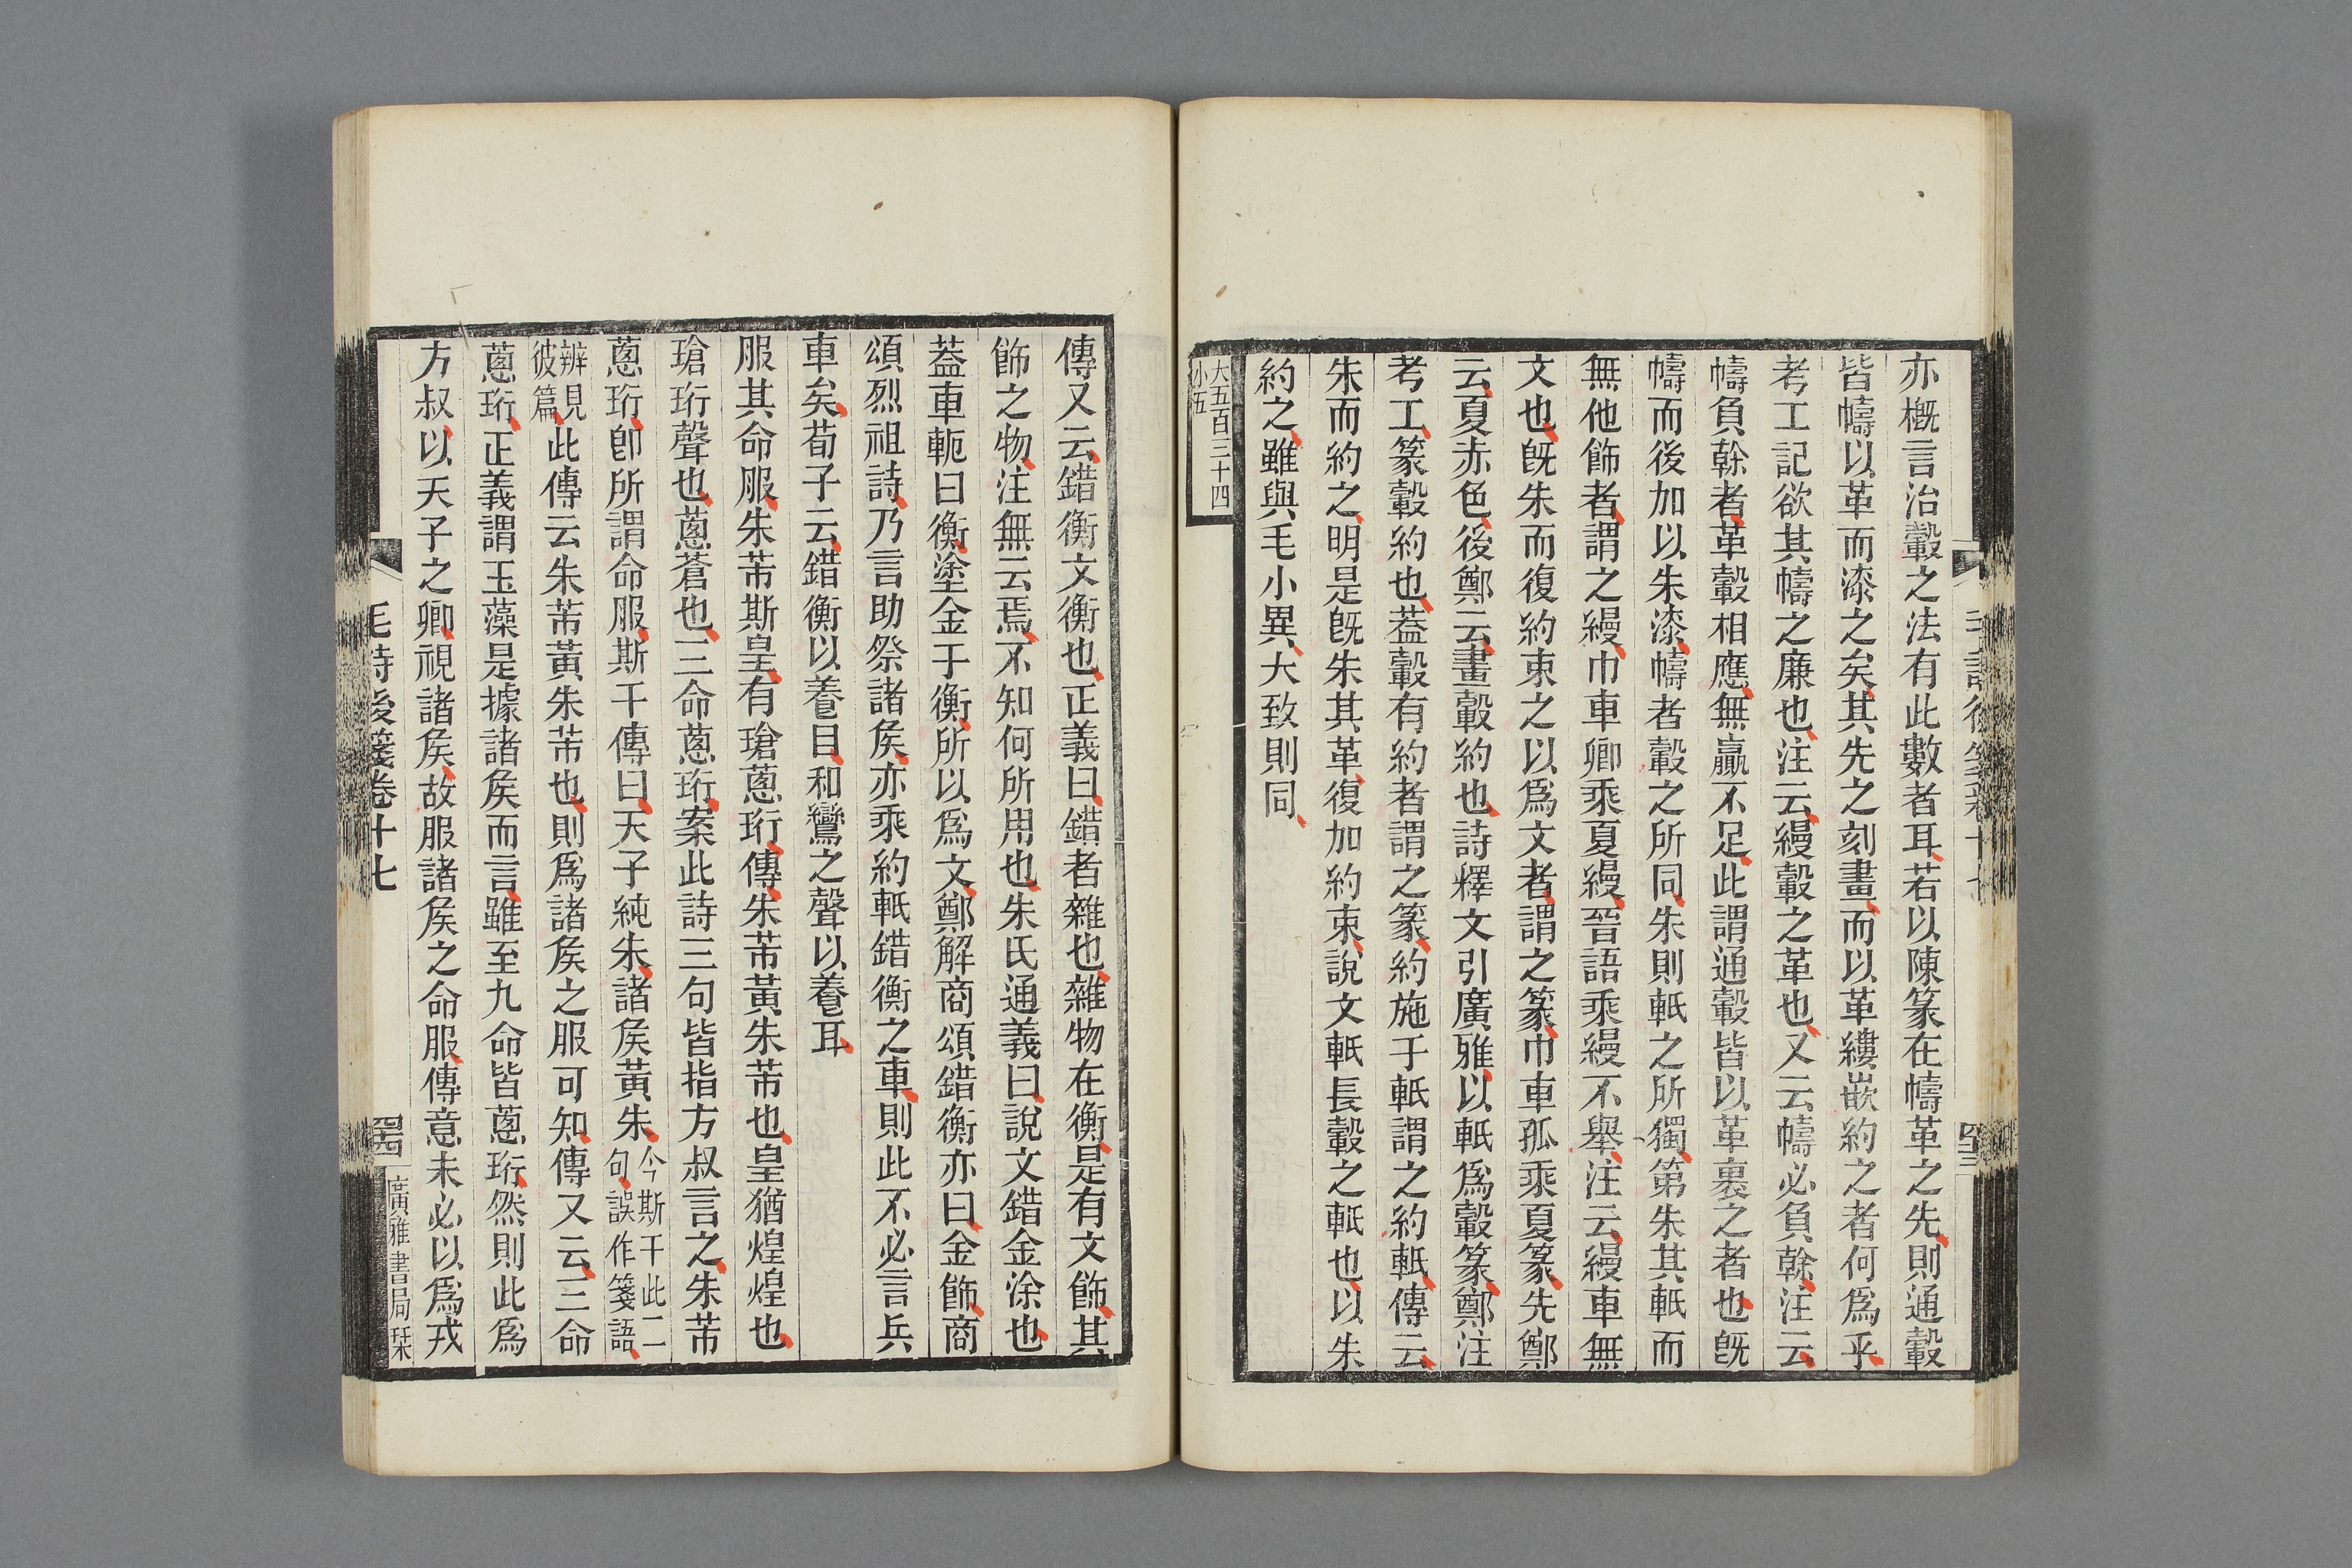 亦槪言治轂之法有此數者耳若以陳篆在幬革之先則通轂
皆幬以革而漆之矣其先之刻畫而以革縷嵌約之者何爲乎
考工記欲其幬之廉也注云縵轂之革也又云幬必負榦注云
幬負榦者革轂相應無贏不足此謂通轂皆以革裹之者也旣
幬而後加以朱漆幬者轂之所同朱則軝之所獨第朱其軝而
無他飾者謂之縵巾車卿乘夏縵晉語乘縵不舉注云縵車無
文也旣朱而復約束之以爲文者謂之篆巾車孤乘夏篆先鄭
云夏赤色後鄭云畫轂約也詩釋文引廣雅以軝爲轂篆鄭注
考工篆轂約也葢轂有約者謂之篆約施于軝謂之約軝傳云
朱而約之明是旣朱其革復加約束說文軝長轂之軝也以朱
約之雖與毛小異大致則同
大五百三十四
小五
傳又云錯衡文衡也正義曰錯者雜也雜物在衡是有文飾其
飾之物注無云焉不知何所用也朱氏通義曰說文錯金涂也
葢車軛曰衡塗金于衡所以爲文鄭解商頌錯衡亦曰金飾商
頌烈祖詩乃言助祭諸矦亦乘約軝錯衡之車則此不必言兵
車矣荀子云錯衡以養目和鸞之聲以養耳
服其命服朱芾斯皇有瑲蔥珩傳朱芾黃朱芾也皇猶煌煌也
瑲珩聲也蔥蒼也三命蔥珩案此詩三句皆指方叔言之朱芾
蔥珩卽所謂命服斯干傳曰天子純朱諸矦黃朱今斯干此二
句誤作箋語
辨見
彼篇此傳云朱芾黃朱芾也則爲諸矦之服可知傳又云三命
蔥珩正義謂玉藻是據諸矦而言雖至九命皆蔥珩然則此爲
方叔以天子之卿視諸矦故服諸矦之命服傳意未必以爲戎
毛詩後箋卷十七
廣雅書局栞